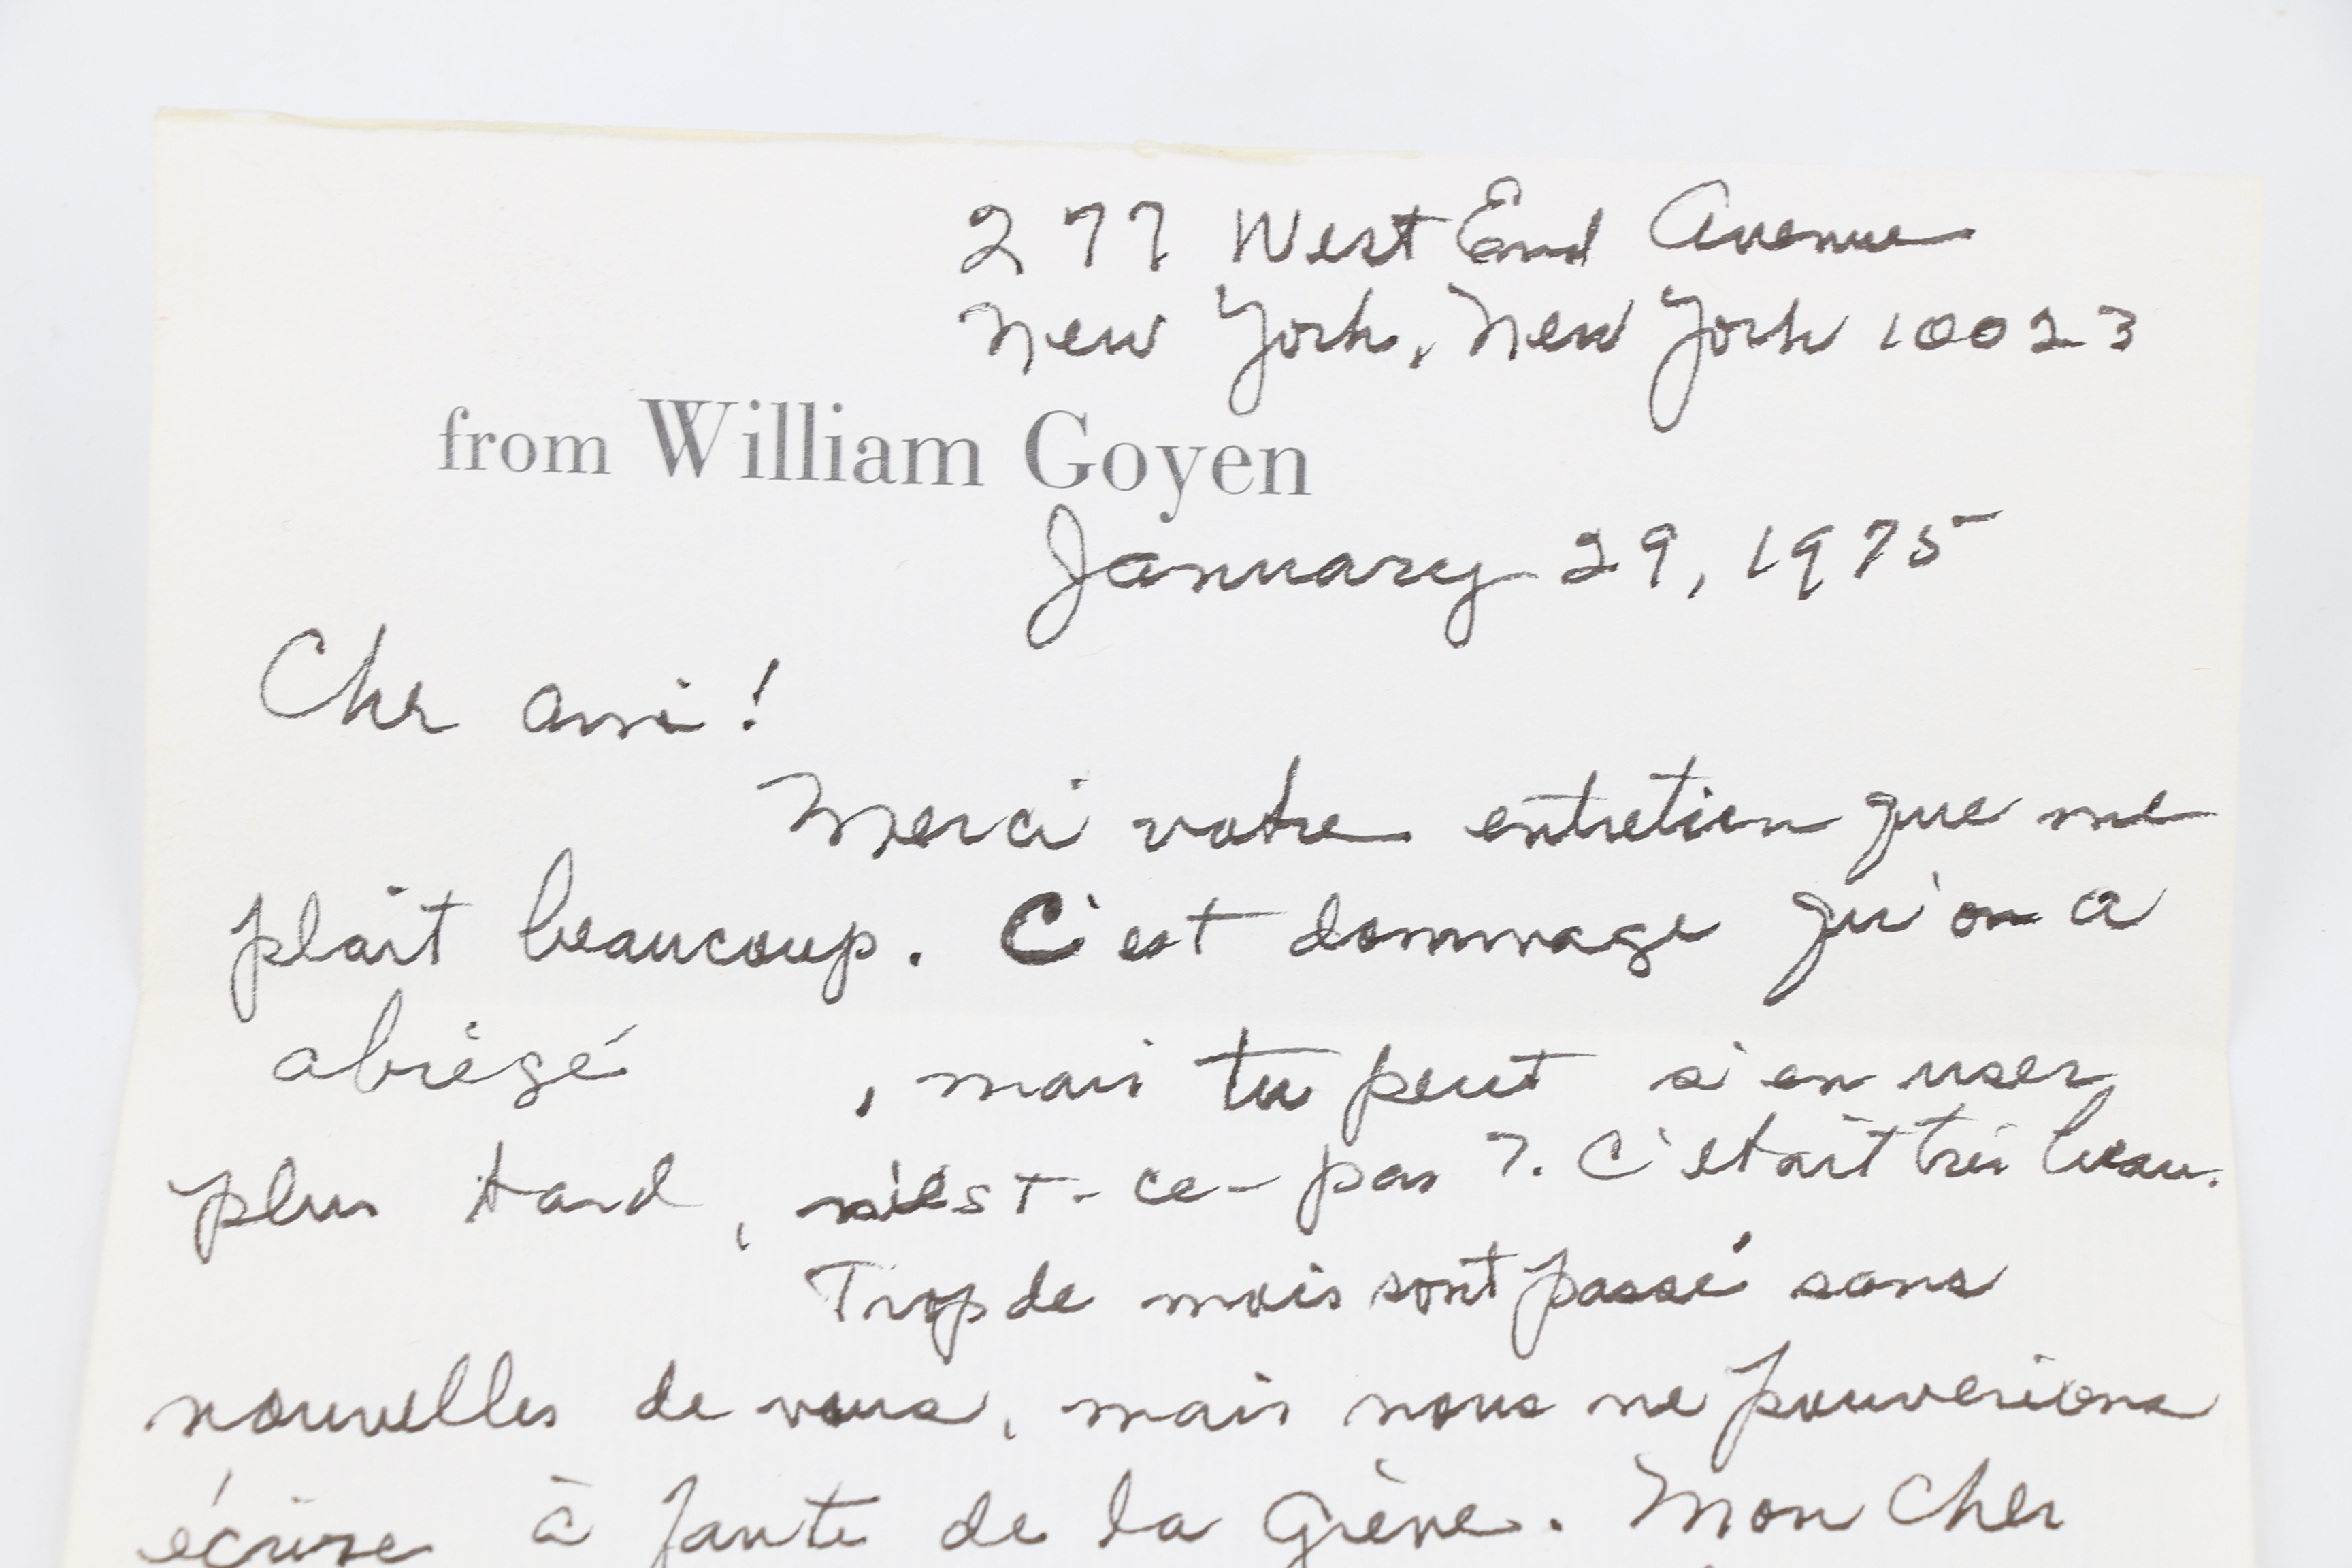 277 West End Avenue
New York, New York 10023
from William Goyen
January 29, 1975
Cher ami!
Merci votre entretien que me
plaît beaucoup. C'est dommage qu'on a
abrégé, mais tu peut s'en user
plus tard, n'est-ce-pas?. C'etait très beau.
Trop de mois sont passé sans
nouvelles de vous, mais nous ne pouverions
écrire à faute de la Grève. Mon cher